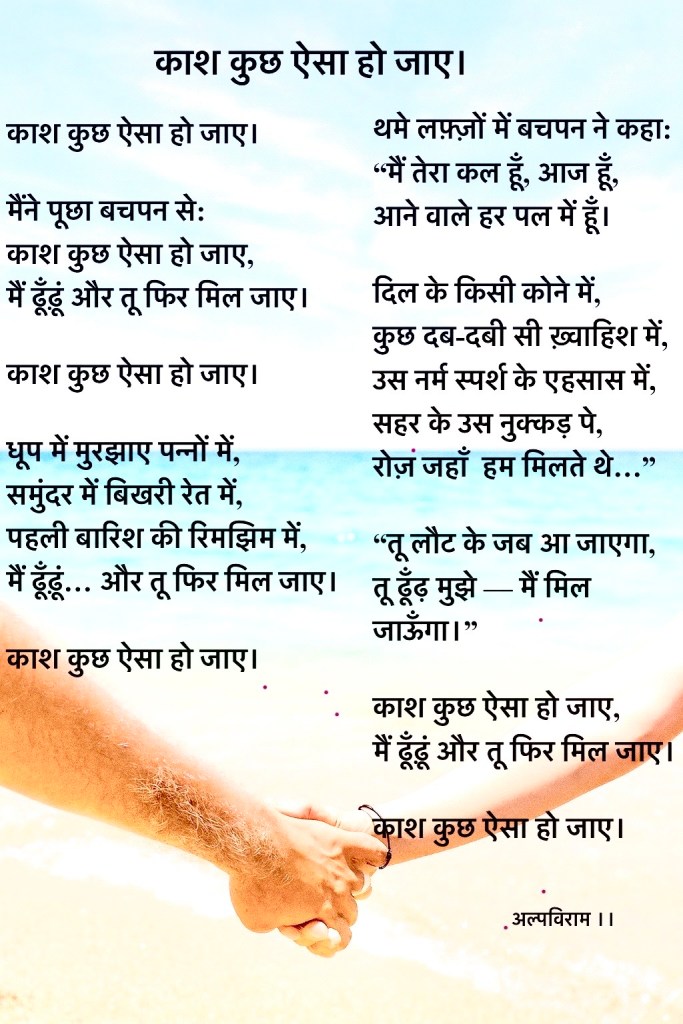 काश कुछ ऐसा हो जाए।
काश कुछ ऐसा हो जाए।
मैंने पूछा बचपन से:
काश कुछ ऐसा हो जाए,
मैं ढूँढूं और तू फिर मिल जाए।
काश कुछ ऐसा हो जाए।
धूप में मुरझाए पन्नों में,
समुंदर में बिखरी रेत में,
पहली बारिश की रिमझिम में,
मैं ढूँढूं... और तू फिर मिल जाए।
काश कुछ ऐसा हो जाए।
थमे लफ़्ज़ों में बचपन ने कहा:
“मैं तेरा कल हूँ, आज हूँ,
आने वाले हर पल में हूँ।
दिल के किसी कोने में,
कुछ दब-दबी सी ख़्वाहिश में,
उस नर्म स्पर्श के एहसास में,
सहर के उस नुक्कड़ पे,
रोज़ जहाँ हम मिलते थे...”
“तू लौट के जब आ जाएगा,
तू ढूँढ़ मुझे — मैं मिल
जाऊँगा।”
काश कुछ ऐसा हो जाए,
मैं ढूँढूं और तू फिर मिल जाए।
काश कुछ ऐसा हो जाए।
अल्पविराम ।।